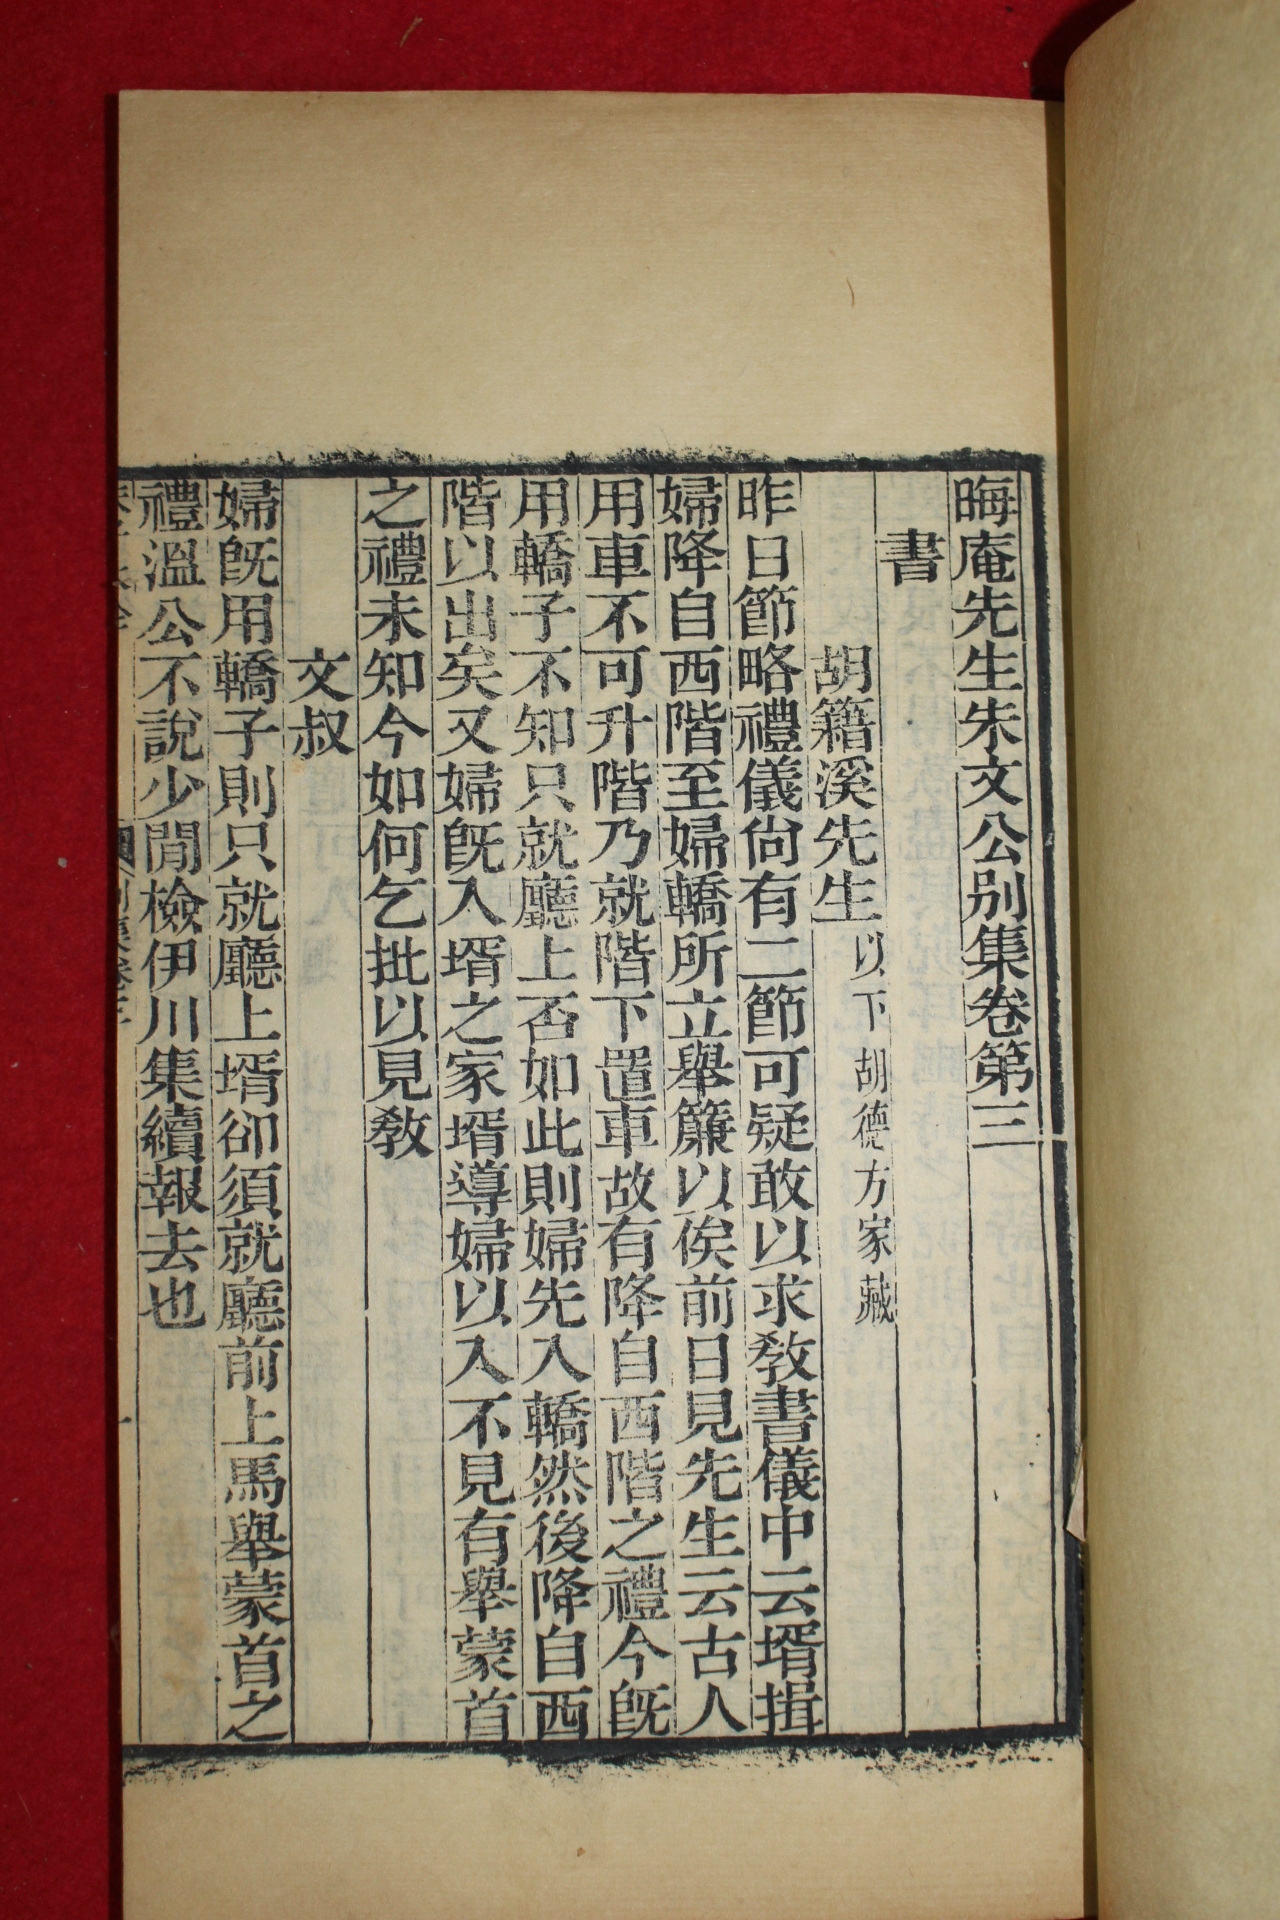 晦庵先生朱文公別集卷第三
書
胡籍溪先生以下胡德方家藏
昨日節略禮儀尙有二節可疑敢以求敎書儀中云壻揖
婦降自西階至婦轎所立舉簾以俟前日見先生云古人
用車不可升階乃就階下置車故有降自西階之禮今旣
用轎子不知只就廳上否如此則婦先入轎然後降自西
階以出矣又婦旣入壻之家壻導婦以入不見有舉蒙首
之禮未知今如何乞批以見敎
文叔
婦旣用轎子則只就廳上壻卻須就廳前上馬舉蒙首之
禮溫公不說少閒檢伊川集續報去也